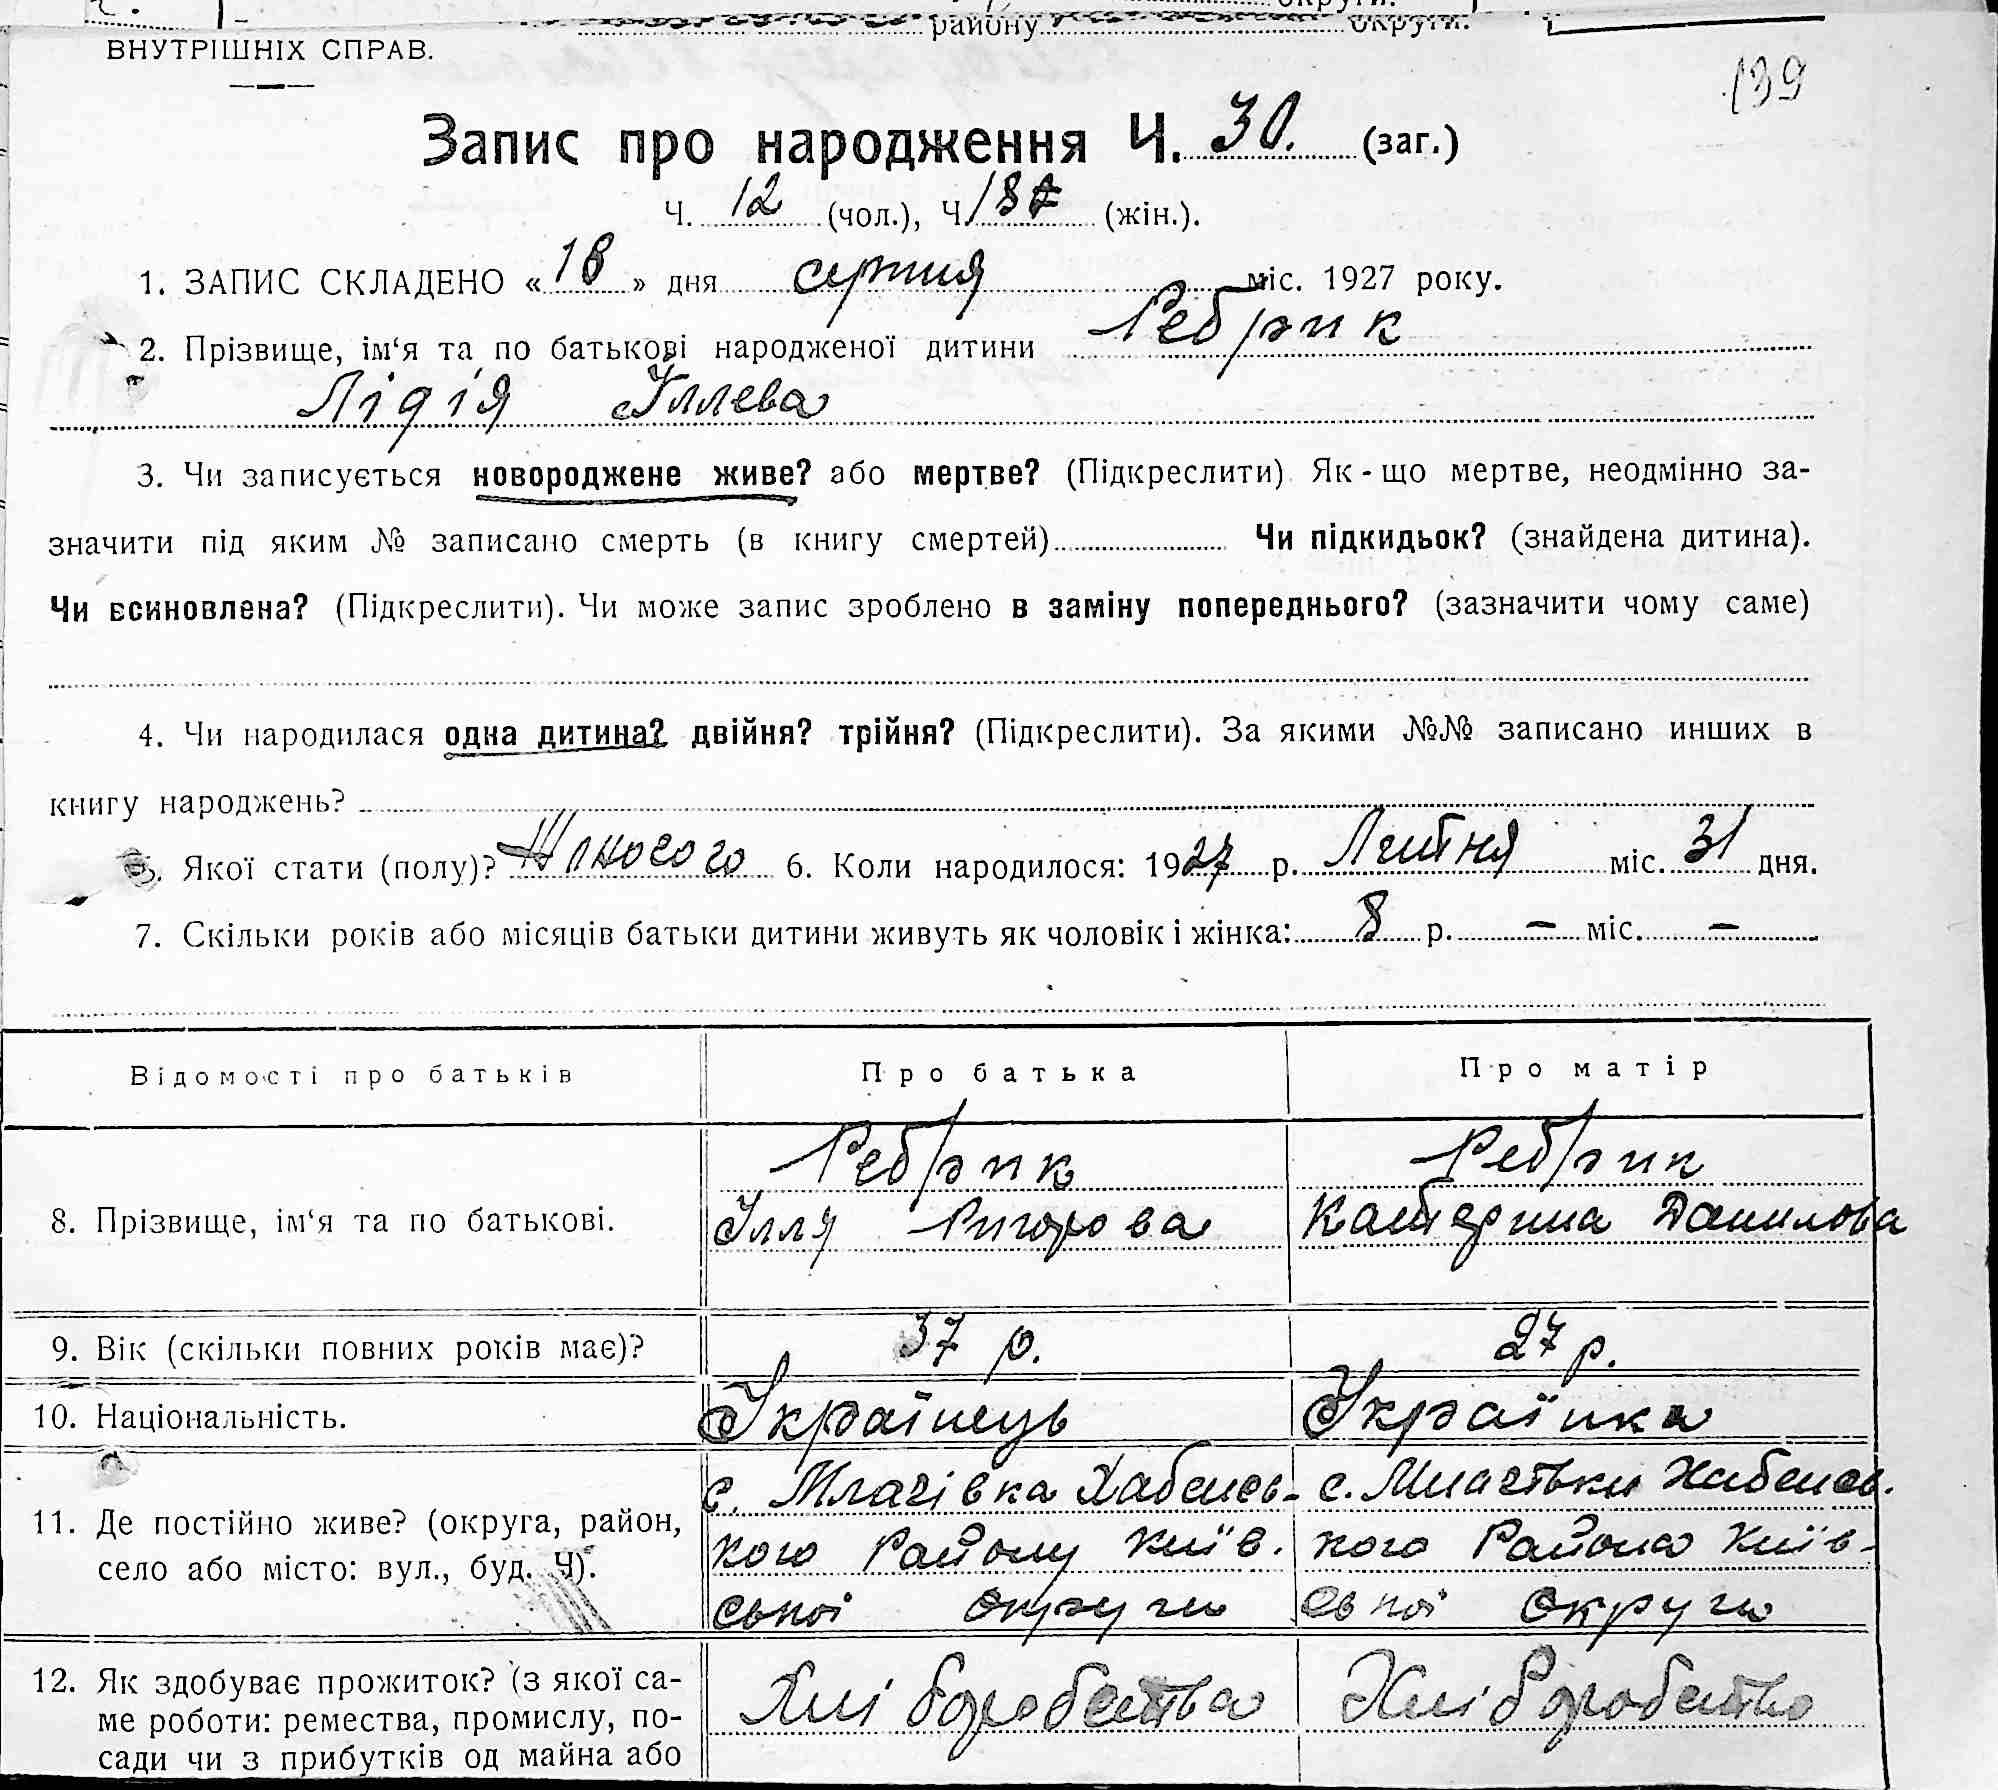 району округи.
ВНУТРІШНІХ СПРАВ.
139
Запис про народження Ч. 30. (заг.)
Ч. 12 (чол.), Ч. 18 (жін.).
1. ЗАПИС СКЛАДЕНО « 18 » дня серпня міс. 1927 року.
2. Прізвище, ім‘я та по батькові народженої дитини Ребрик
Лідія Іллєва
3. Чи записується новороджене живе? або мертве? (Підкреслити). Як-що мертве, неодмінно за-
значити під яким № записано смерть (в книгу смертей) Чи підкидьок? (знайдена дитина).
Чи всиновлена? (Підкреслити). Чи може запис зроблено в заміну попереднього? (зазначити чому саме)
4. Чи народилася одна дитина? двійня? трійня? (Підкреслити). За якими №№ записано инших в
книгу народжень?
5. Якої стати (полу)? Жіносого 6. Коли народилося: 1927 р. Липня міс. 31 дня.
7. Скільки років або місяців батьки дитини живуть як чоловік і жінка: 8 р. — міс. —
Відомості про батьків Про батька Про матір
Ребрик Ребрик
8. Прізвище, ім‘я та по батькові. Ілля Ригорова Катерина Данилова
9. Вік (скільки повних років має)? 37 р. 27 р.
10. Національність. Українець Українка
с. Млачівка Хабенсь- с. Млачівки Хабенсь-
11. Де постійно живе? (округа, район, кого Району Київ- кого Району Київ-
село або місто: вул., буд. Ч). ської округи ської округи
12. Як здобуває прожиток? (з якої са- Хліборобства Хліборобство
ме роботи: ремества, промислу, по-
сади чи з прибутків од майна або